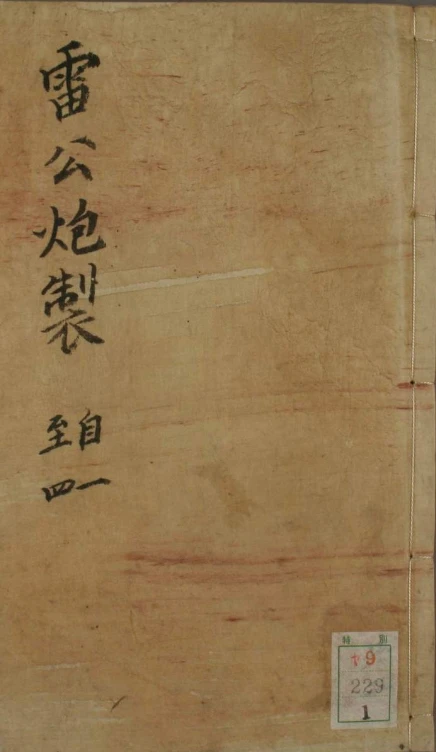 雷公炮製
自一
至四
特別
79
229
1